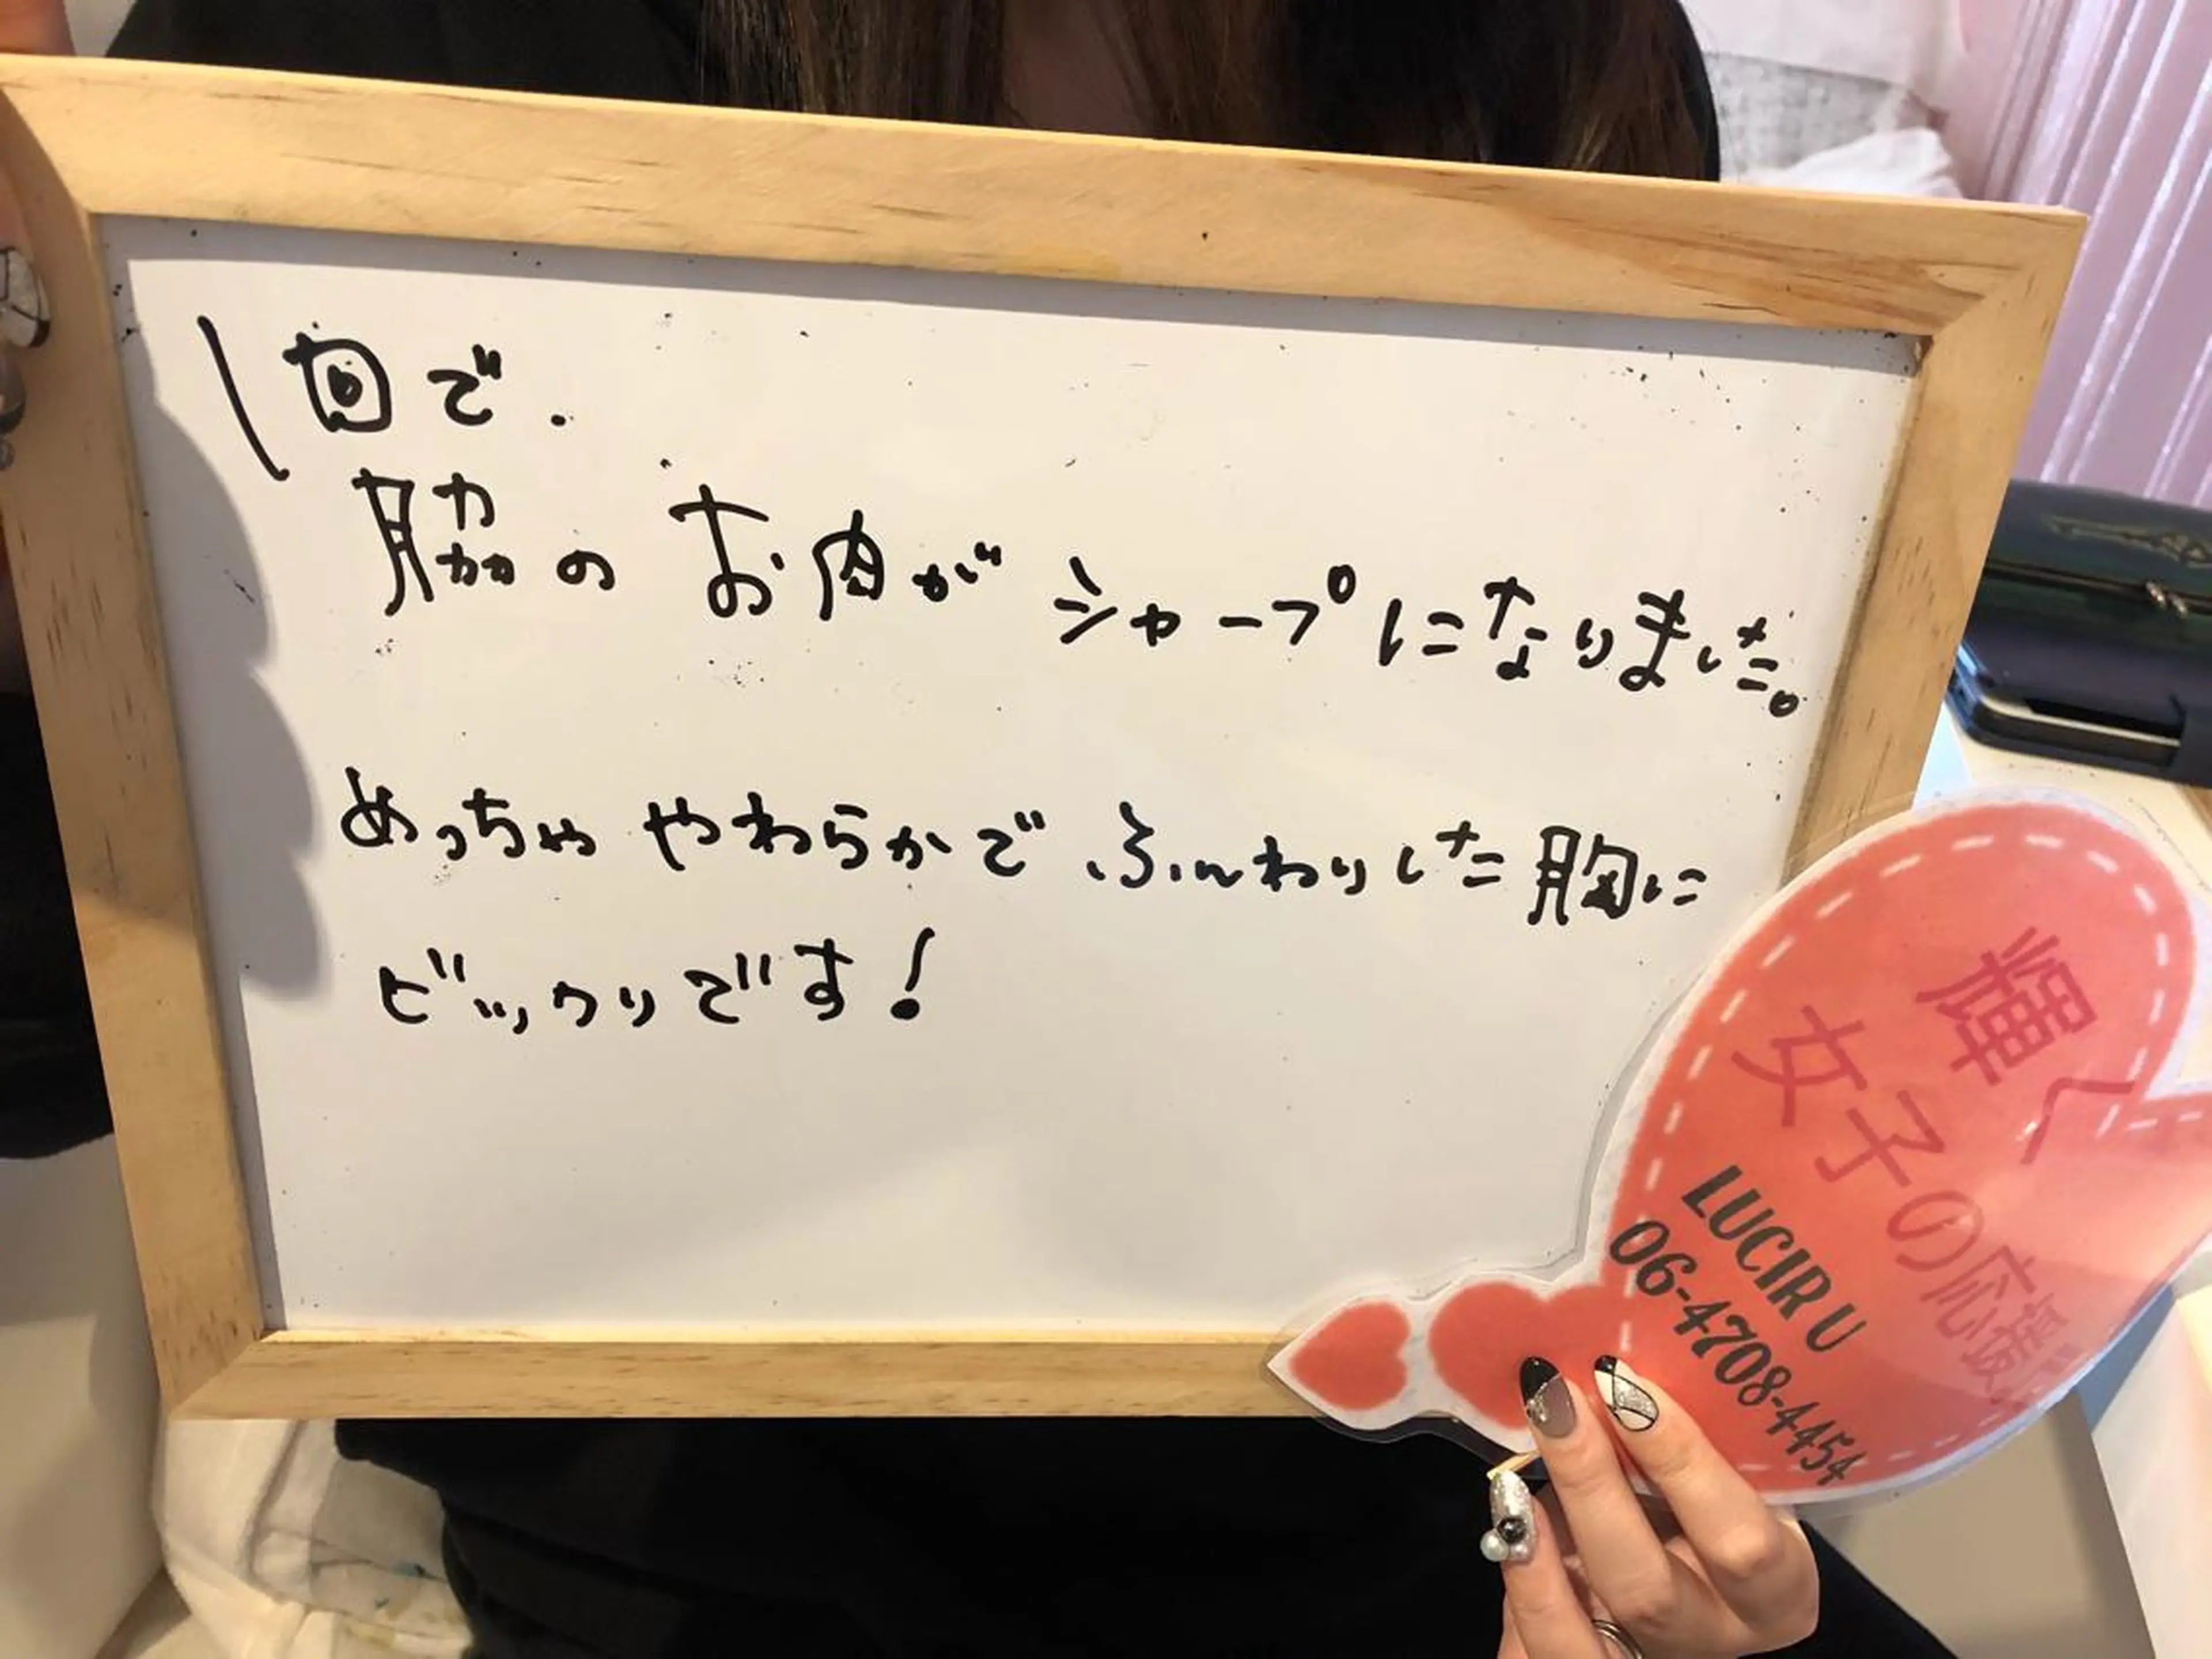 1回で.
脇のお肉がシャープになりました。
めっちゃやわらかでふんわりした胸に
ビックリです!
輝く
女子の応援
LUCIR U
06-4708-4454